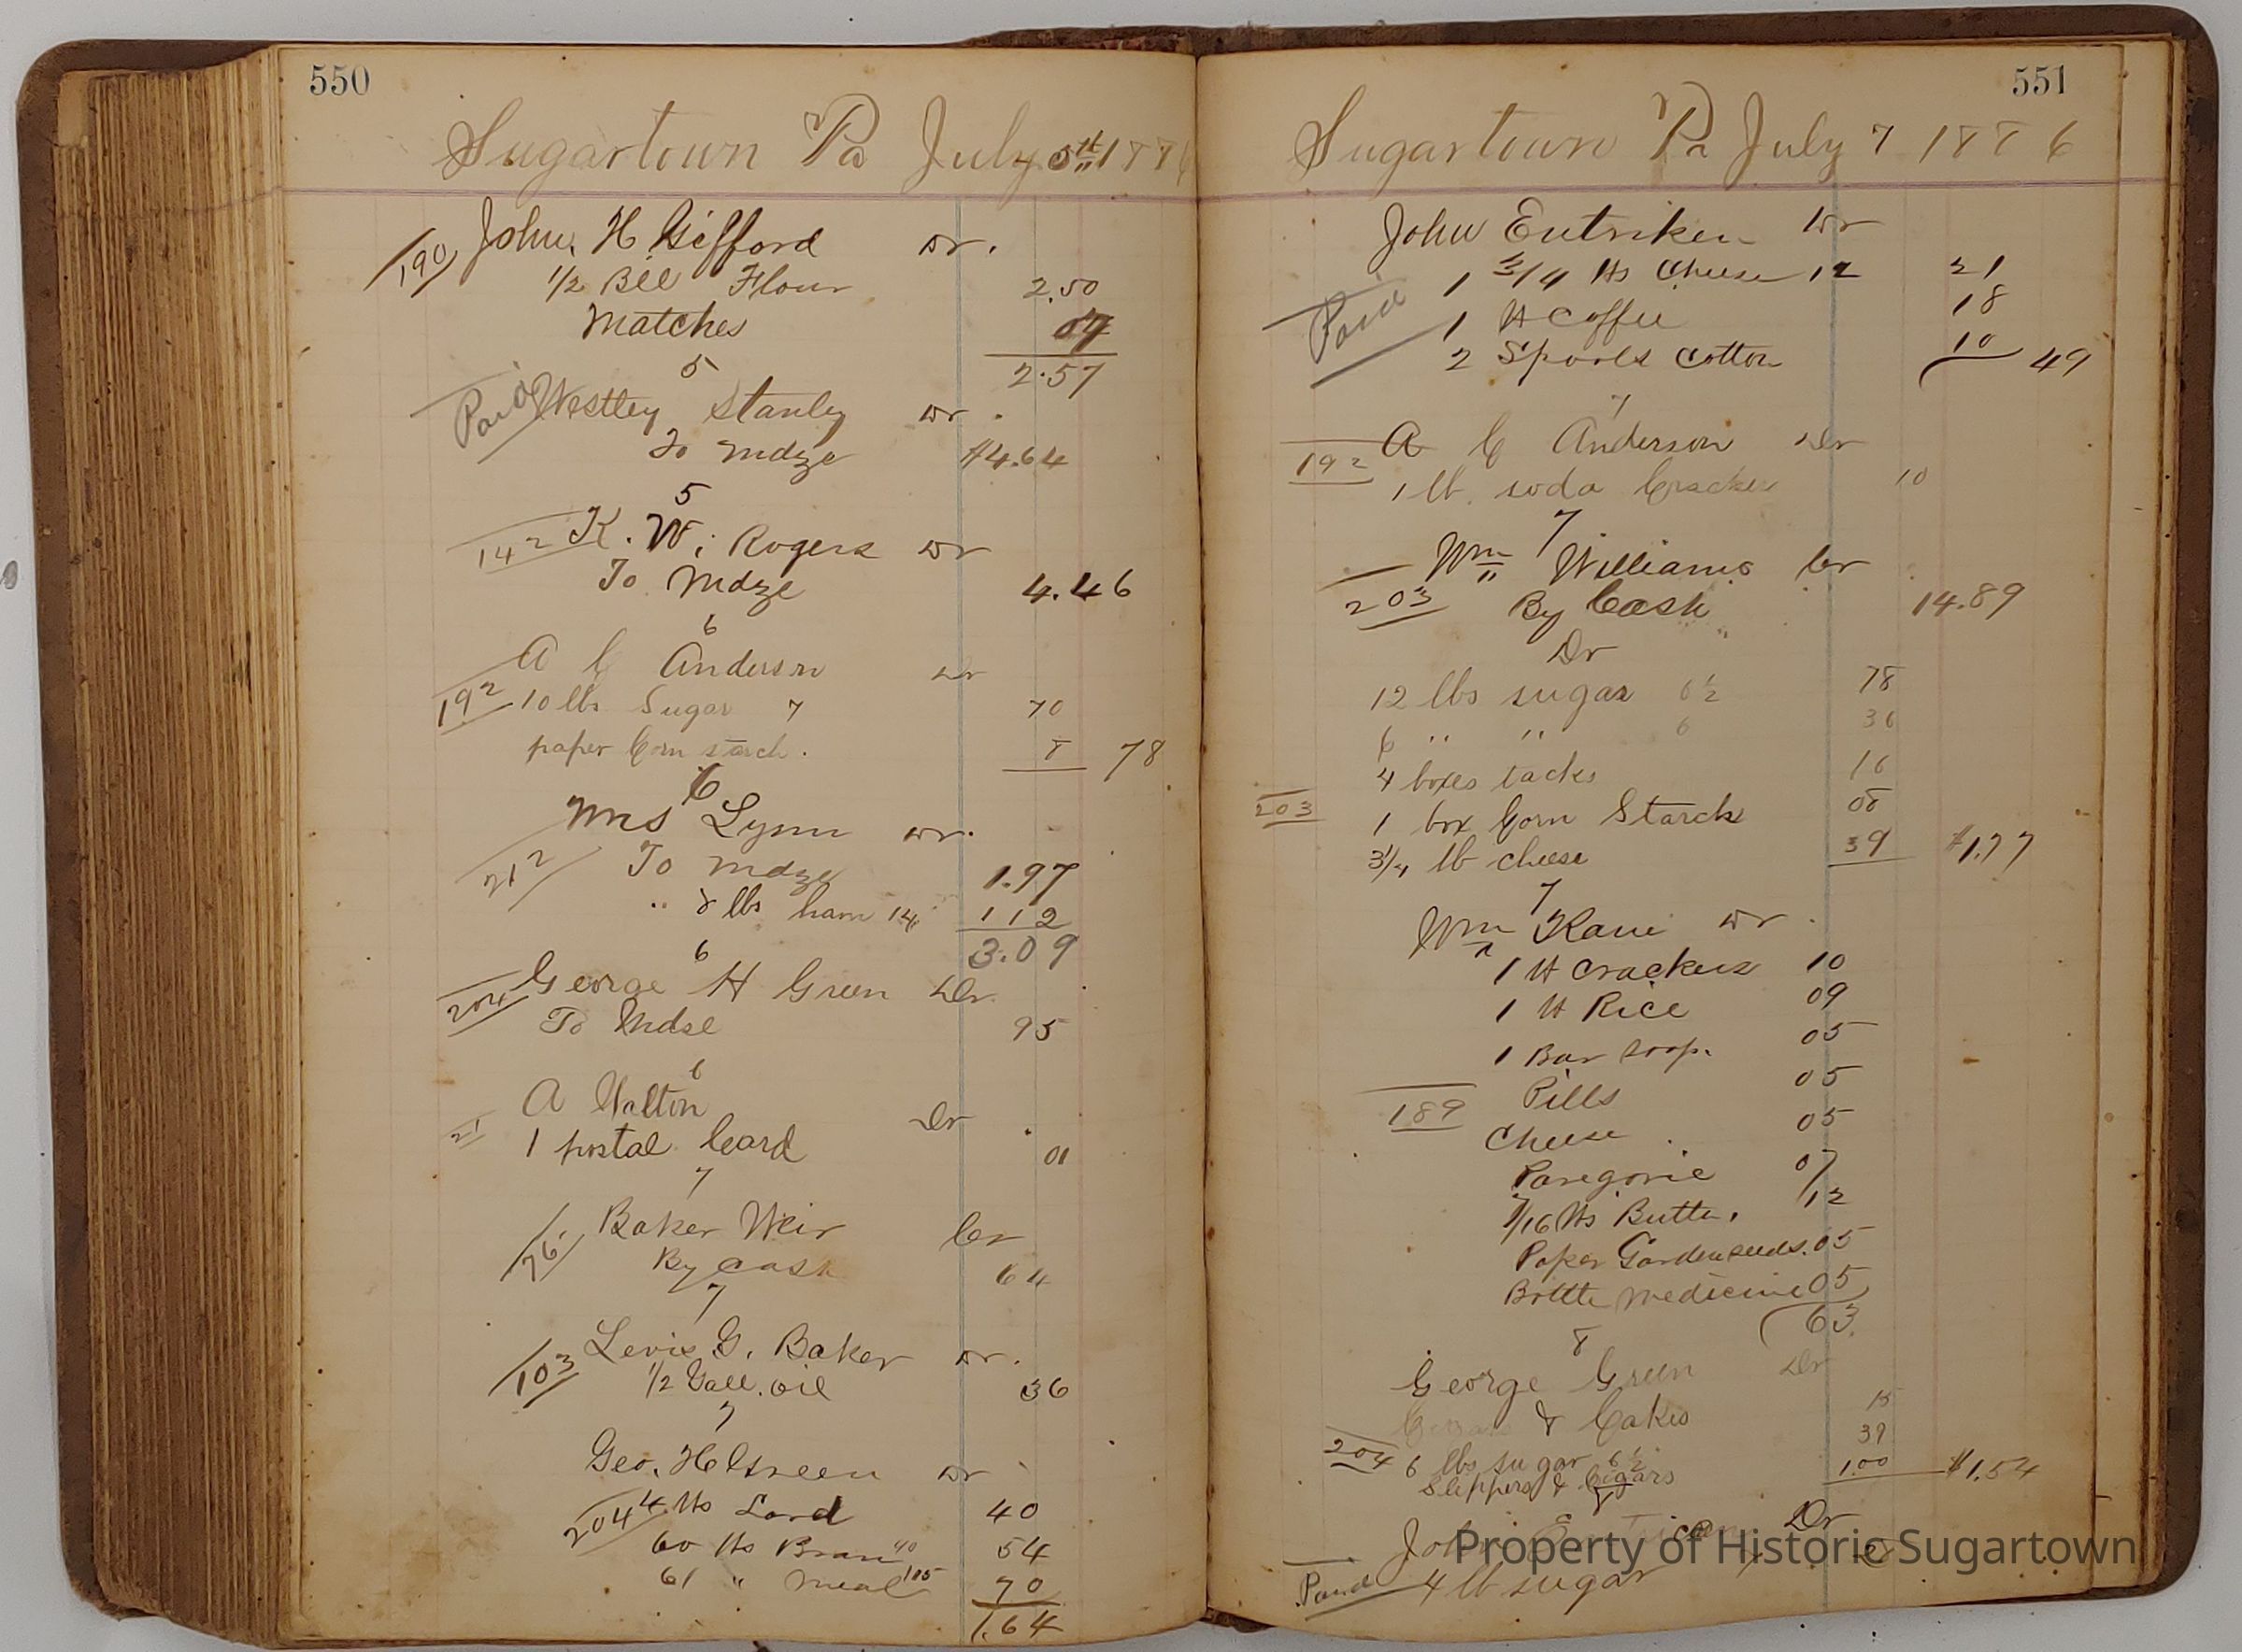 550
Sugartown Pa July 5th 1886
John. H Gifford Dr.
190
1/2 Bll Flour 2.50
Matches 07
2.57
5
Paid Westley Stanley Dr.
To Mdze $4.64
5
142 K. W. Rogers Dr
To Mdze 4.46
6
A C Anderson Dr
192 10 lbs Sugar 7 70
paper Corn starch. 8 78
6
Mrs Lynn Dr.
212 To Mdze 1.97
" 8 lbs ham 14 1 12
3.09
6
204 George H Green Dr.
To Mdse 95
6
A Walton Dr
21 1 postal Card 01
7
76 Baker Weir Cr
By Cash 64
7
Levis G. Baker Dr.
103 1/2 Gall. oil 36
7
Geo. H Green Dr
204 4 lbs Lard 40
60 lbs Bran 90 54
61 " meal 105 70
1.64
551
Sugartown Pa July 7 1886
John Entriken Dr
1 3/4 lbs Cheese 12 21
Paid 1 lb Coffee 18
2 Spools Cotton 10 49
7
A C Anderson Dr
192 1 lb. soda Crackers 10
7
Wm Williams Cr
203 By Cash 14.89
Dr
12 lbs sugar 6 1/2 78
6 " " 6 36
4 boxes tacks 16
203 1 box Corn Starch 08
3 1/4 lb cheese 39 $1.77
7
Wm Kane Dr.
1 lb Crackers 10
1 lb Rice 09
1 Bar Soap. 05
189 Pills 05
Cheese 05
Paregoric 07
7/16 lbs Butter. 12
Paper Gardenseeds. 05
Bottle Medicine 05
63
8
George Green Dr
& Cakes 15
204 6 lbs sugar 6 1/2 39
Slippers & Cigars 1.00 $1.54
John Entrican Dr
Paid 4 lb sugar
Property of Historic Sugartown